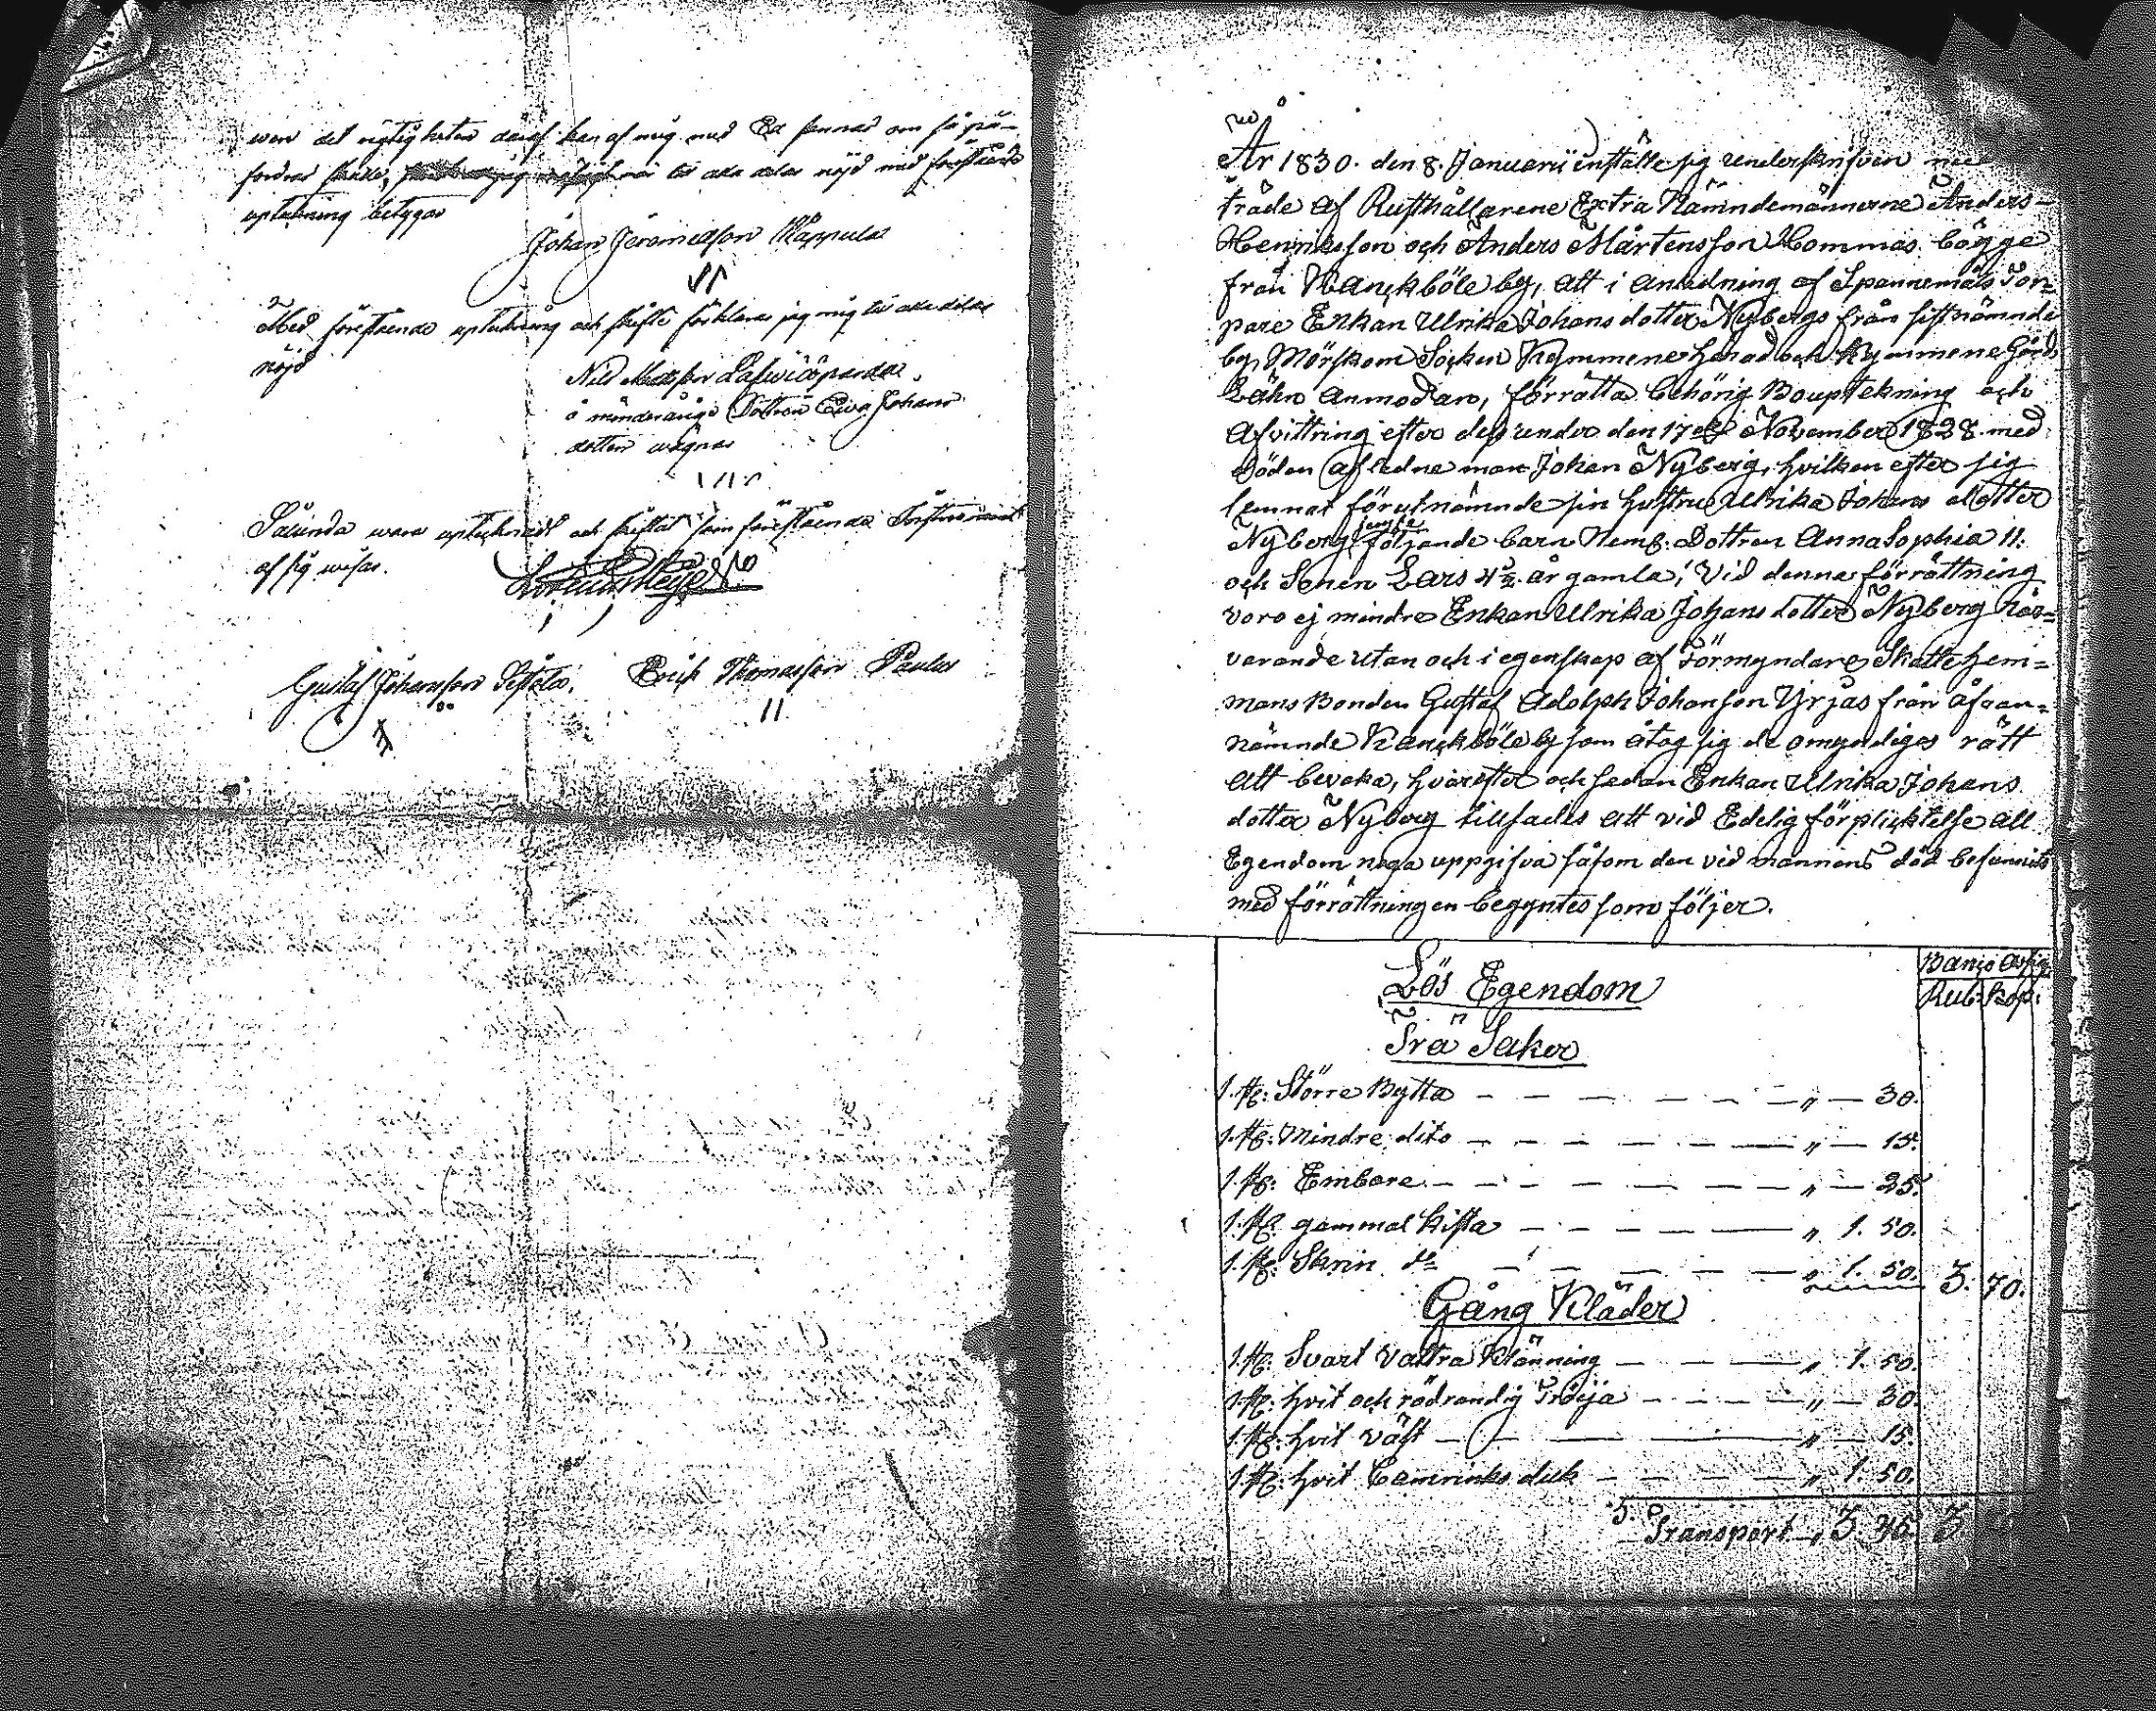 wore det rigtigheten däraf kan af mig med Ed
fordras skulle, til alla delar nöjd med förestående
upteckning betygar
Johan Jeremiasson Kåppula
Med förestående upteckning och skifte förklarar jag mig til alla delar
nöjd
Nils Mattsson
å minderåriga Dottren Ewa Johans
dotter wägnar
Sålunda wara uptecknadt och skiftat som förestående Instrument
af sig wisar.
Gustaf Johansson Erich Thomasson Paulus
År 1830. den 8. Januarii instälte sig underskrifven
träde af Rusthållarene Extra Nämndemännerne Anders
Henriksson och Anders Mårtensson Hommas bägge
från Kanckböle by, att i anledning af Spannemåls Tor=
pare Enkan Ulrika Johans dotter Nybergs från sistnämnde
by, Mörskom Socken Kymmene Härad och Kymmene Gård
Lähn anmodan, förrätta behörig Bouptekning och
afvittring efter dess under den 17de November 1828 med
döden afledne man Johan Nyberg, hvilken efter sig
lemnat förutnämnde sin hustru Ulrika Johans dotter
Nyberg jemte följande barn Neml. Dottren Anna Sophia 11.
och Sonen Lars 4½ år gamla; Vid denna förrättning
voro ej mindre Enkan Ulrika Johans dotter Nyberg när=
varande utan och i egenskap af Förmyndare Skatte hem=
mans Bonden Gustaf Adolph Johansson Yrjas från åfvan=
nämnde Kanckböle by som åtog sig de omyndigas rätt
att bevaka, hvarefter och sedan Enkan Ulrika Johans
dotter Nyberg tillsades att vid Edelig förplicktelse all
Egendom noga uppgifva såsom den vid mannens död befunnits
med förrättningen begyntes som följer.
Banco Assig.
Rub: Kop:
Lös Egendom
Trä Saker
1. st: Större Bytta — — — — — — " — 30.
1. st: Mindre dito — — — — — " — 15.
1. st: Embare — — — — — — " — 25.
1. st: gammal Kista — — — — " 1. 50.
1. st: Skrin do — — — — " 1. 50. 3. 70.
Gång Kläder
1. st: Svart Klänning — — — " 1. 50.
1. st: hvit och rödrandig Tröija — — — " — 30.
1. st: hvit väst — — — " — 15.
1. st: hvit Camriks duk — — — " 1. 50.
Transport " 3. 45. 3.